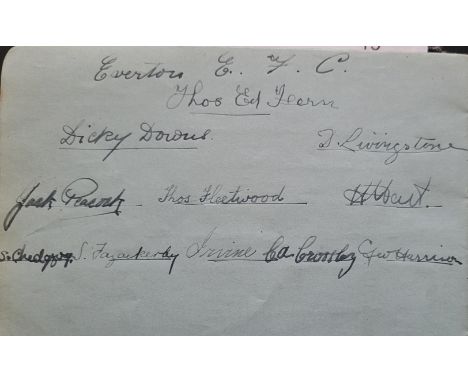 Everton F. C.
Thos Ed Fern
Dicky Downs. D. Livingstone
Jack Peacock. Thos Fleetwood H Hart.
S. Chedgzoy. S. Fazackerley Irvine C Crossley Geo Harrison